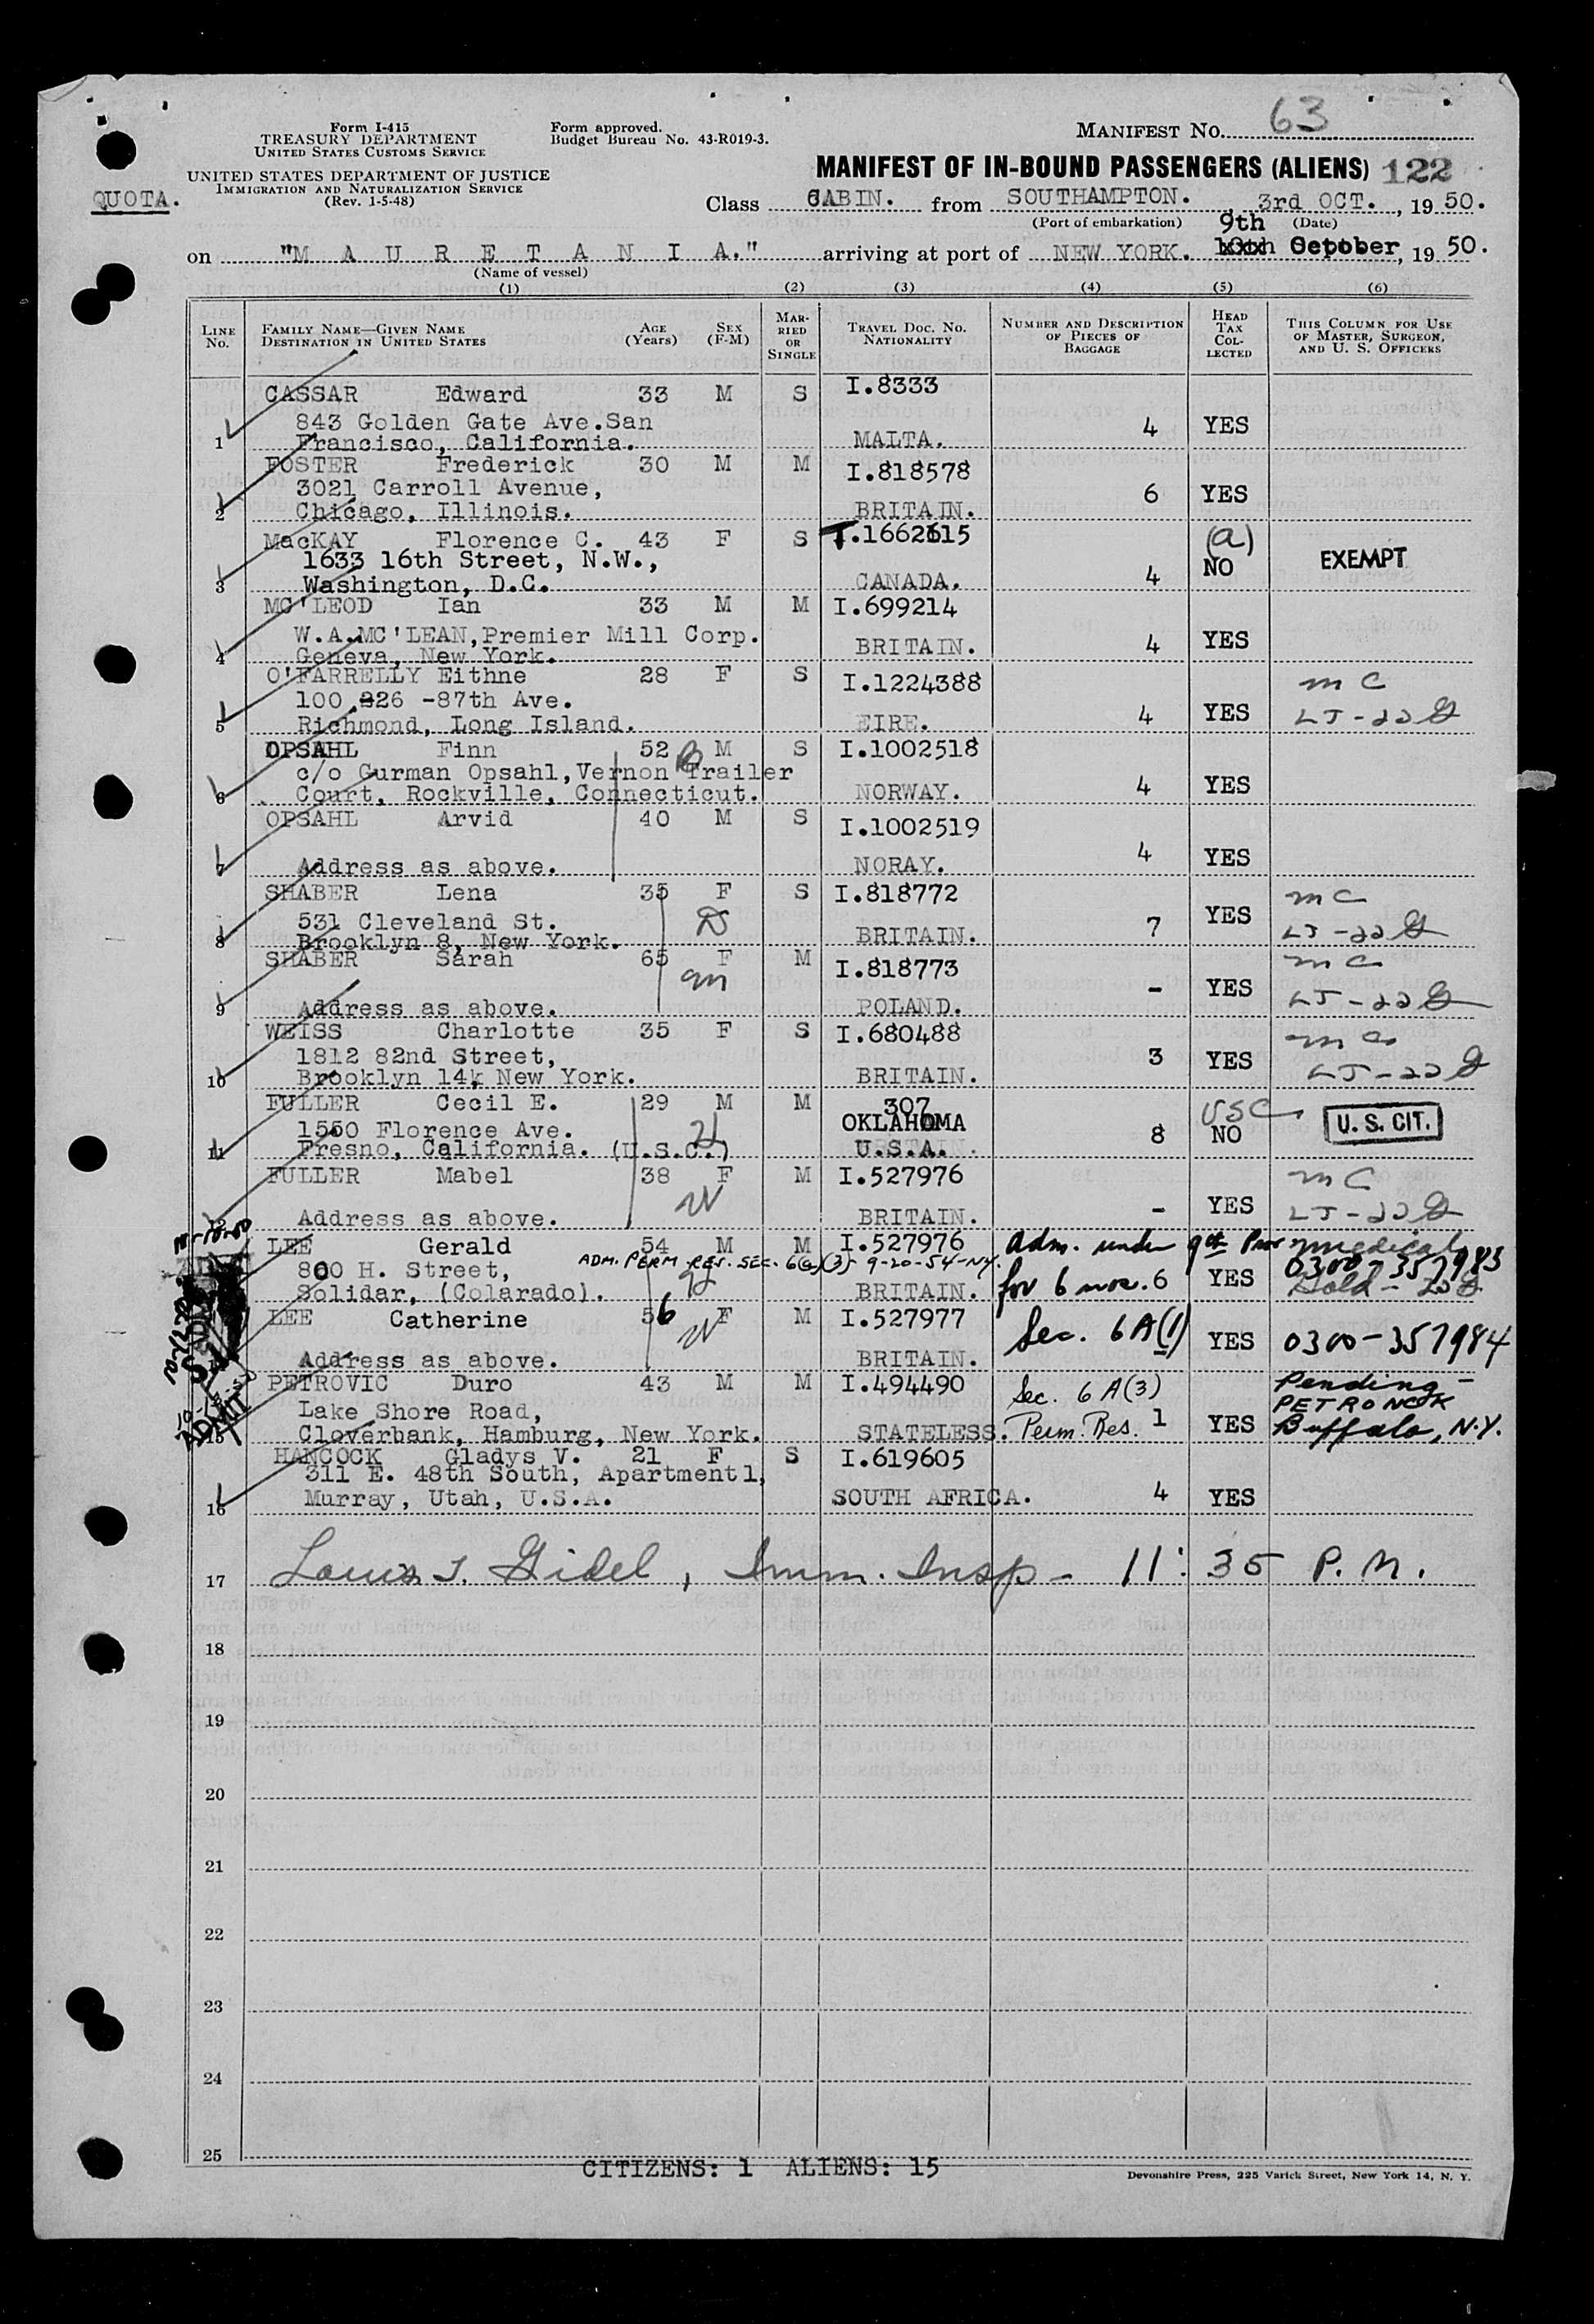 Form I-415
TREASURY DEPARTMENT
UNITED STATES CUSTOMS SERVICE
UNITED STATES DEPARTMENT OF JUSTICE
IMMIGRATION AND NATURALIZATION SERVICE
(Rev. 1-5-48)
Form approved.
Budget Bureau No. 43-R019-3.
QUOTA.
MANIFEST NO. 63
MANIFEST OF IN-BOUND PASSENGERS (ALIENS) 122
Class CABIN. from SOUTHAMPTON. , 3rd OCT. , 19 50.
(Port of embarkation) (Date)
9th
on "M A U R E T A N I A." arriving at port of NEW YORK. October, 19 50.
(Name of vessel)
(1) (2) (3) (4) (5) (6)
LINE NO.
FAMILY NAME—GIVEN NAME
DESTINATION IN UNITED STATES
AGE (Years)
SEX (F-M)
MARRIED OR SINGLE
TRAVEL DOC. NO.
NATIONALITY
NUMBER AND DESCRIPTION OF PIECES OF BAGGAGE
HEAD TAX COLLECTED
THIS COLUMN FOR USE OF MASTER, SURGEON, AND U. S. OFFICERS
CASSAR Edward 33 M S I.8333
843 Golden Gate Ave.San 4 YES
1 Francisco, California. MALTA.
FOSTER Frederick 30 M M I.818578
3021 Carroll Avenue, 6 YES
2 Chicago, Illinois. BRITAIN.
MacKAY Florence C. 43 F S (a)
1633 16th Street, N.W., NO EXEMPT
3 Washington, D.C. CANADA. 4
MC'LEOD Ian 33 M M I.699214
W.A.MC'LEAN,Premier Mill Corp. 4 YES
4 Geneva, New York. BRITAIN.
O'FARRELLY Eithne 28 F S I.1224388 mc
100 -87th Ave. 4 YES LJ-22
5 Richmond, Long Island. EIRE.
OPSAHL Finn 52 M S I.1002518
c/o Gurman Opsahl,Vernon Trailer
6 Court, Rockville, Connecticut. NORWAY. 4 YES
OPSAHL Arvid 40 M S I.1002519
7 Address as above. NORAY. 4 YES
SHABER Lena 35 F S I.818772 mc
531 Cleveland St. 7 YES
8 Brooklyn 8, New York. BRITAIN. LJ-22
SHABER Sarah 65 F M I.818773 mc
9 Address as above. POLAND. - YES LJ-22
WEISS Charlotte 35 F S I.680488 mc
1812 82nd Street, 3 YES
10 Brooklyn 14, New York. BRITAIN. LJ-22
FULLER Cecil E. 29 M M 307 USC
1550 Florence Ave. OKLAHOMA 8 NO U. S. CIT.
11 Fresno, California. (U.S.C.) U.S.A.
FULLER Mabel 38 F M I.527976 mc
12 Address as above. BRITAIN. - YES LJ-22
LEE Gerald 54 M M I.527976 Adm. under 9th Prov medical
ADM. PERM. RES. SEC. 6(a)(3) 9-20-54-NY. 0300-357983
800 H. Street, YES
Solidar, (Colarado). BRITAIN. for 6 mos. 6 Hold
LEE Catherine 56 F M I.527977 Sec. 6A(1) YES 0300-357984
Address as above. BRITAIN.
PETROVIC Duro 43 M M I.494490 Sec. 6A(3) Pending -
Lake Shore Road, Perm. Res. 1 YES
15 Cloverbank, Hamburg, New York. STATELESS. Buffalo, N.Y.
ADMIT
HANCOCK Gladys V. 21 F S I.619605
311 E. 48th South, Apartment1,
16 Murray, Utah, U.S.A. SOUTH AFRICA. 4 YES
17 Gidel, Imm. Insp - 11:35 P.M.
18
19
20
21
22
23
24
25
CITIZENS: 1 ALIENS: 15
Devonshire Press, 225 Varick Street, New York 14, N. Y.